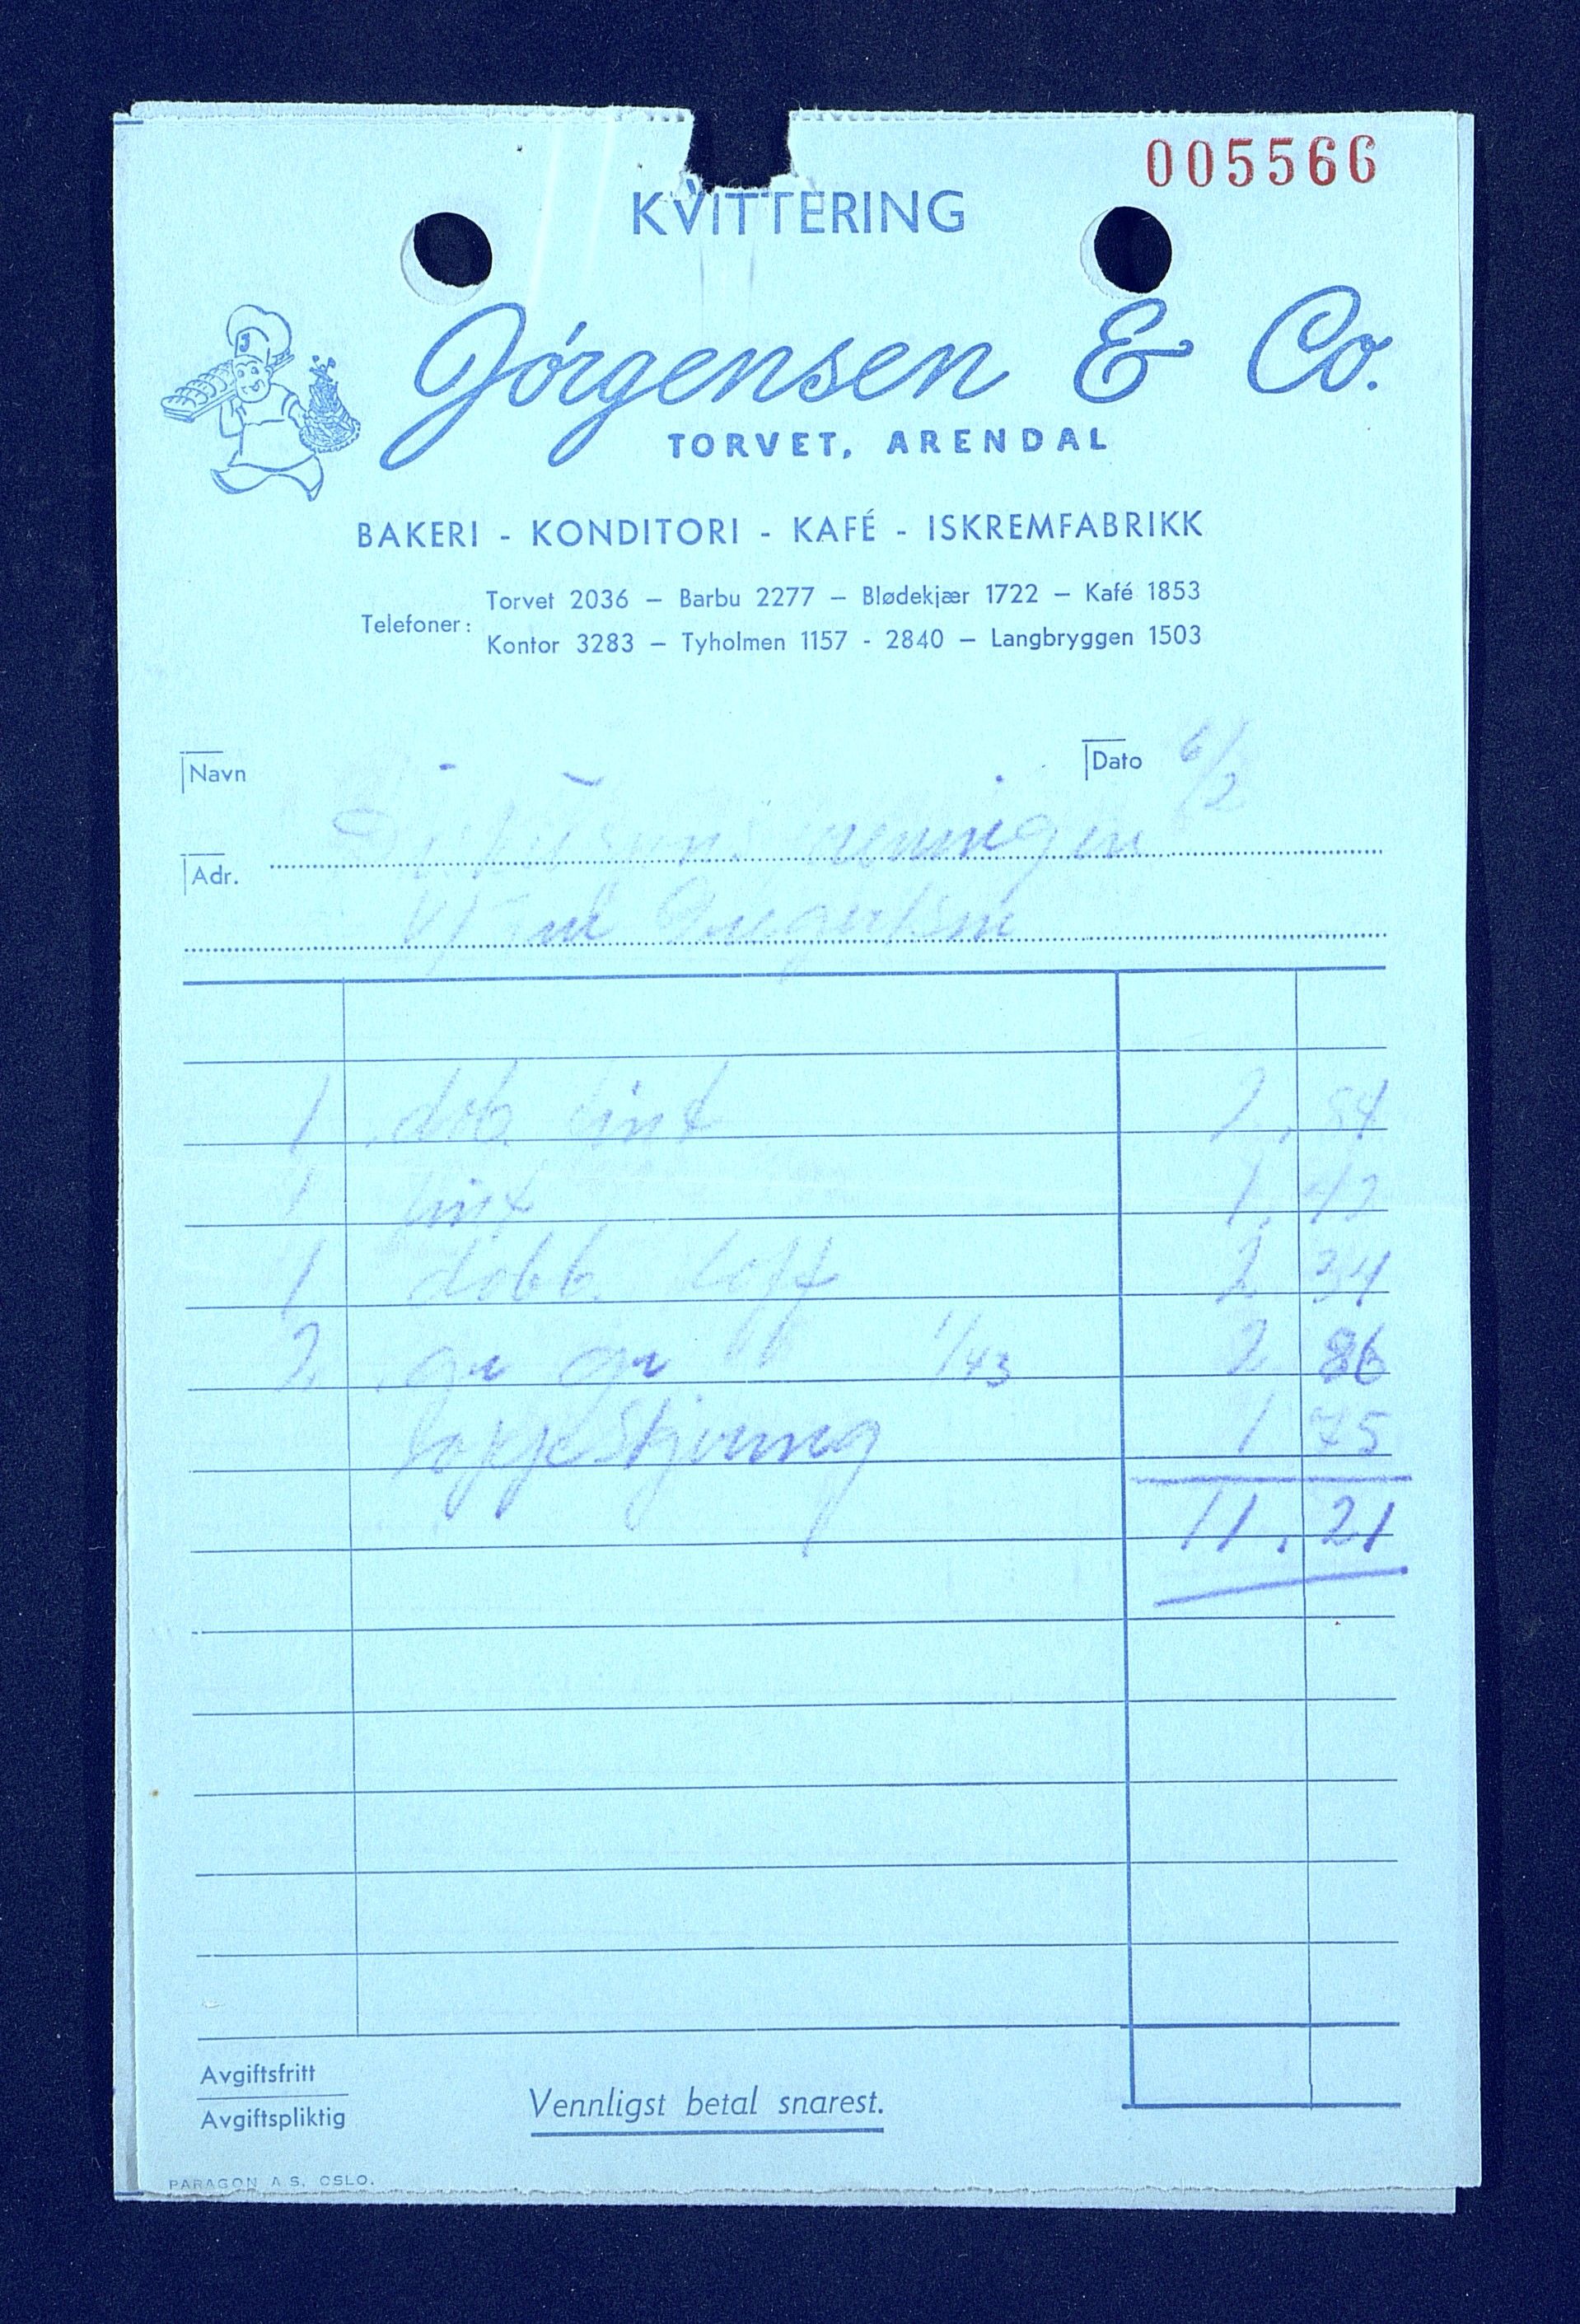 005566
KVITTERING
J
Jórgensen & Co.
TORVET, ARENDAL
BAKERI - KONDITORI - KAFÉ - ISKREMFABRIKK
Telefoner:
Torvet 2036 — Barbu 2277 — Blødekjær 1722 — Kafé 1853
Kontor 3283 — Tyholmen 1157 - 2840 — Langbryggen 1503
Navn
Dato 6/2
foreningen
Adr.
V/
1 dob. fint 2,84
1 fint 1,42
1 dobb. loff 2 34
2 1/43 2 86
1 75
11.21
Avgiftsfritt
Avgiftspliktig
Vennligst betal snarest.
PARAGON A.S. OSLO.